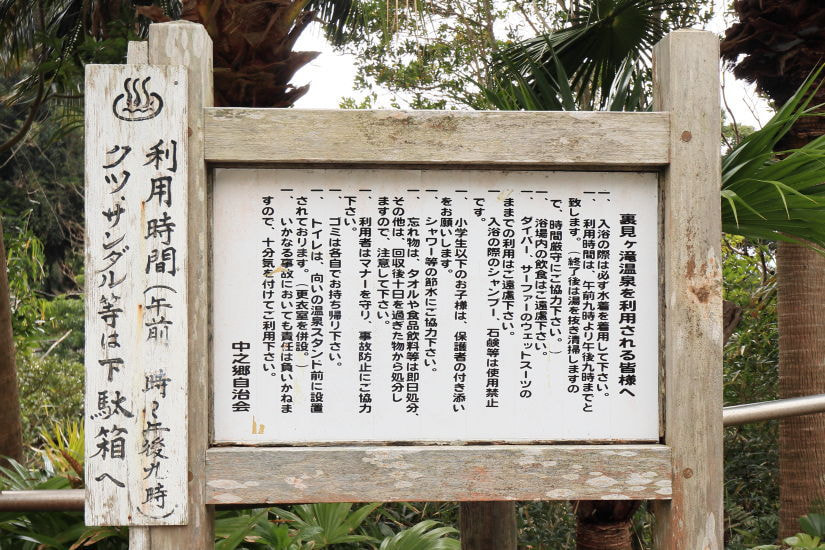 裏見ヶ滝温泉を利用される皆様へ
一、入浴の際は必ず水着を着用して下さい。
一、利用時間は、午前九時より午後九時までと
致します。（終了後は湯を抜き清掃しますの
で、時間厳守にご協力下さい。）
一、浴場内の飲食はご遠慮下さい。
一、ダイバー、サーファーのウェットスーツの
ままでの利用はご遠慮下さい。
一、入浴の際のシャンプー、石鹸等は使用禁止
です。
一、小学生以下のお子様は、保護者の付き添い
をお願いします。
一、シャワー等の節水にご協力下さい。
一、忘れ物は、タオルや食品飲料等は即日処分、
その他は、回収後十日を過ぎた物から処分し
ますので、注意して下さい。
一、利用者はマナーを守り、事故防止にご協力
下さい。
一、ゴミは各自でお持ち帰り下さい。
一、トイレは、向いの温泉スタンド前に設置
されております。（更衣室を併設。）
一、いかなる事故においても責任は負いかねま
すので、十分気を付けてご利用下さい。
中之郷自治会
利用時間（午前 時〜午後九時）
クツ、サンダル等は下駄箱へ